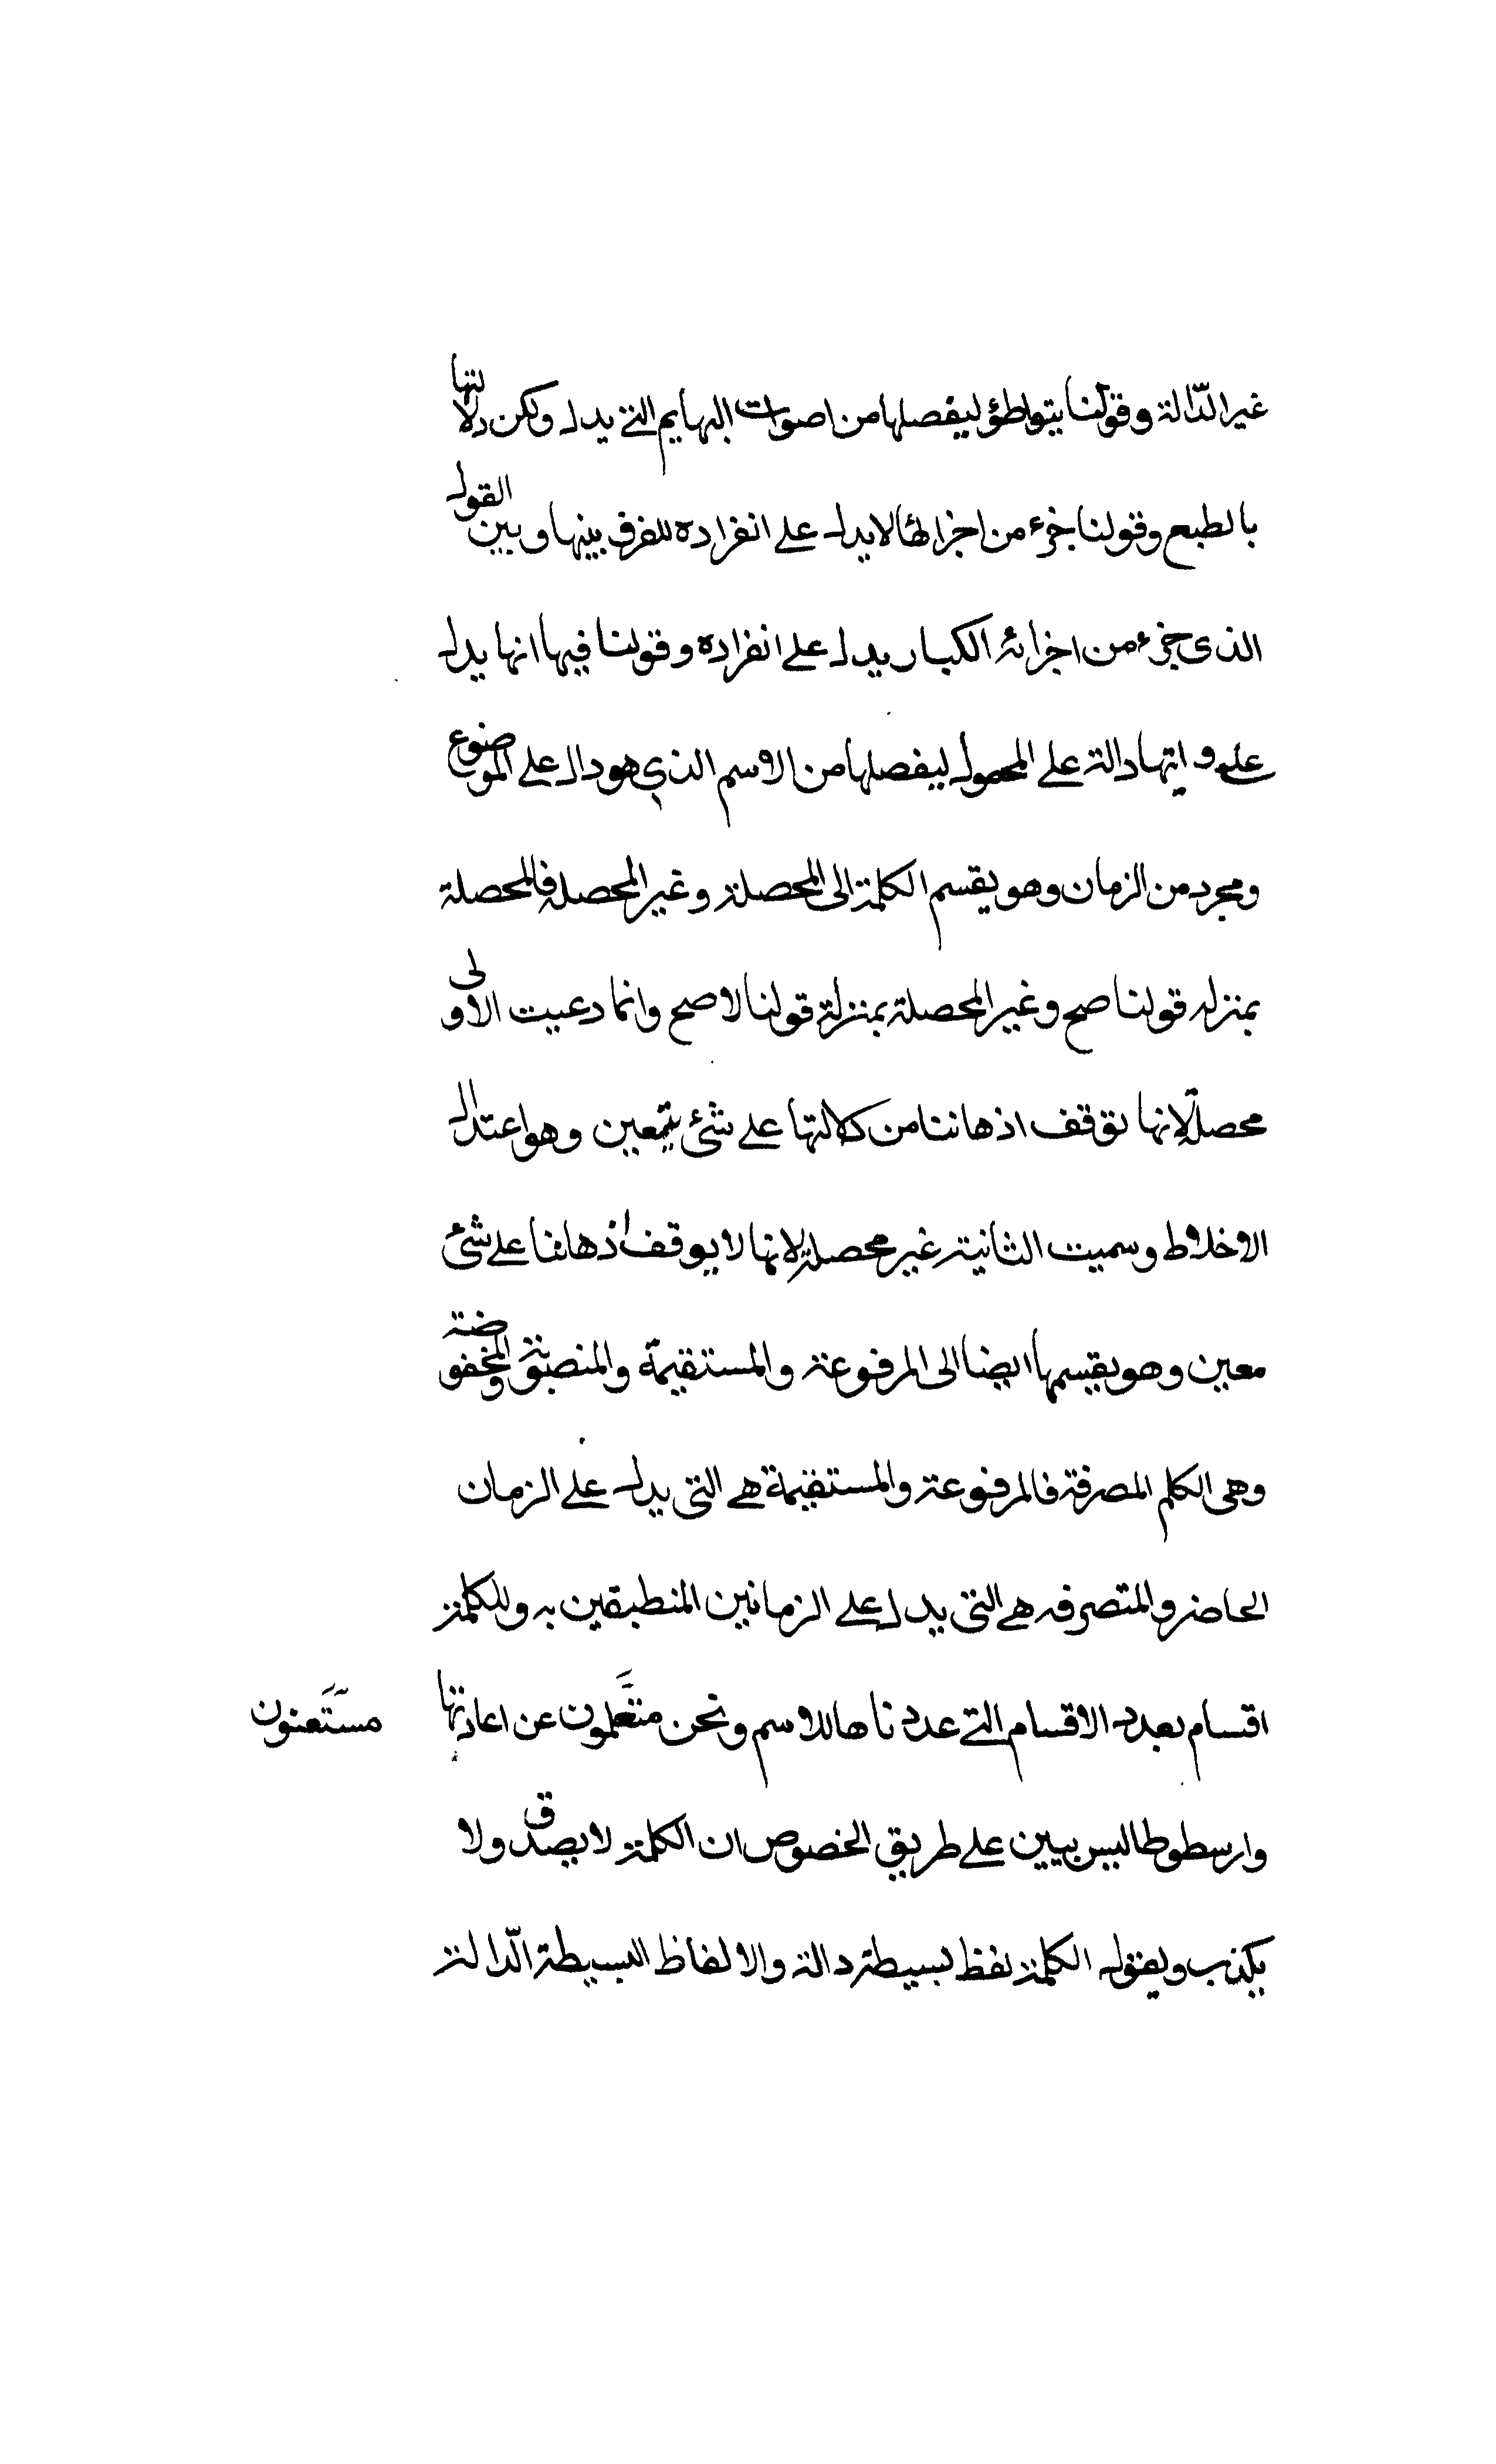 غير الدّالة وقولنا بتواطؤ ليفصلها من اصوات البهايم التى يدل ولكن دلالتها
بالطبع وقولنا جزء من اجزائها لا يدل على انفراده للفرق بينها وبين القول
الذى جزء من اجزائه الكبار يدل على انفراده وقولنا فيها انها يدل
على وانها دالة على المحمول ليفصلها من الاسم الذي هو دال على الموضوع
ومجرد من الزمان وهو يقسم الكلمة الى المحصلة وغير المحصلة فالمحصلة
بمنزله قولنا صح وغير المحصلة بمنزلة قولنا لا صح وانما دعيت الاولى
محصلة لانها توقف اذهاننا من دلالتها على شئ بتمعين وهو اعتدال
الاخلاط وسميت الثانية غير محصلة لانها لا يوقف اذهاننا على شئ
معين وهو يقسمها ايضا الى المرفوعة والمستقيمة والمنصوبة والمخفوضة
وهى الكلم المصرفة فالمرفوعة والمستقيمة هى التى يدل على الزمان
الحاضر والمتصرفه هى التى يدل على الزمانين المنطبقين به وللكلمة
اقسام بعدد الاقسام التى عددناها للاسم ونحن متعلمون عن اعادتها
مستعنون
وارسطوطاليس يبين على طريق الخصوص ان الكلمة لا يصدق ولا
يكذب ويقول الكلمة لفظ بسيطة دالة والالفاظ البسيطة الدّالة